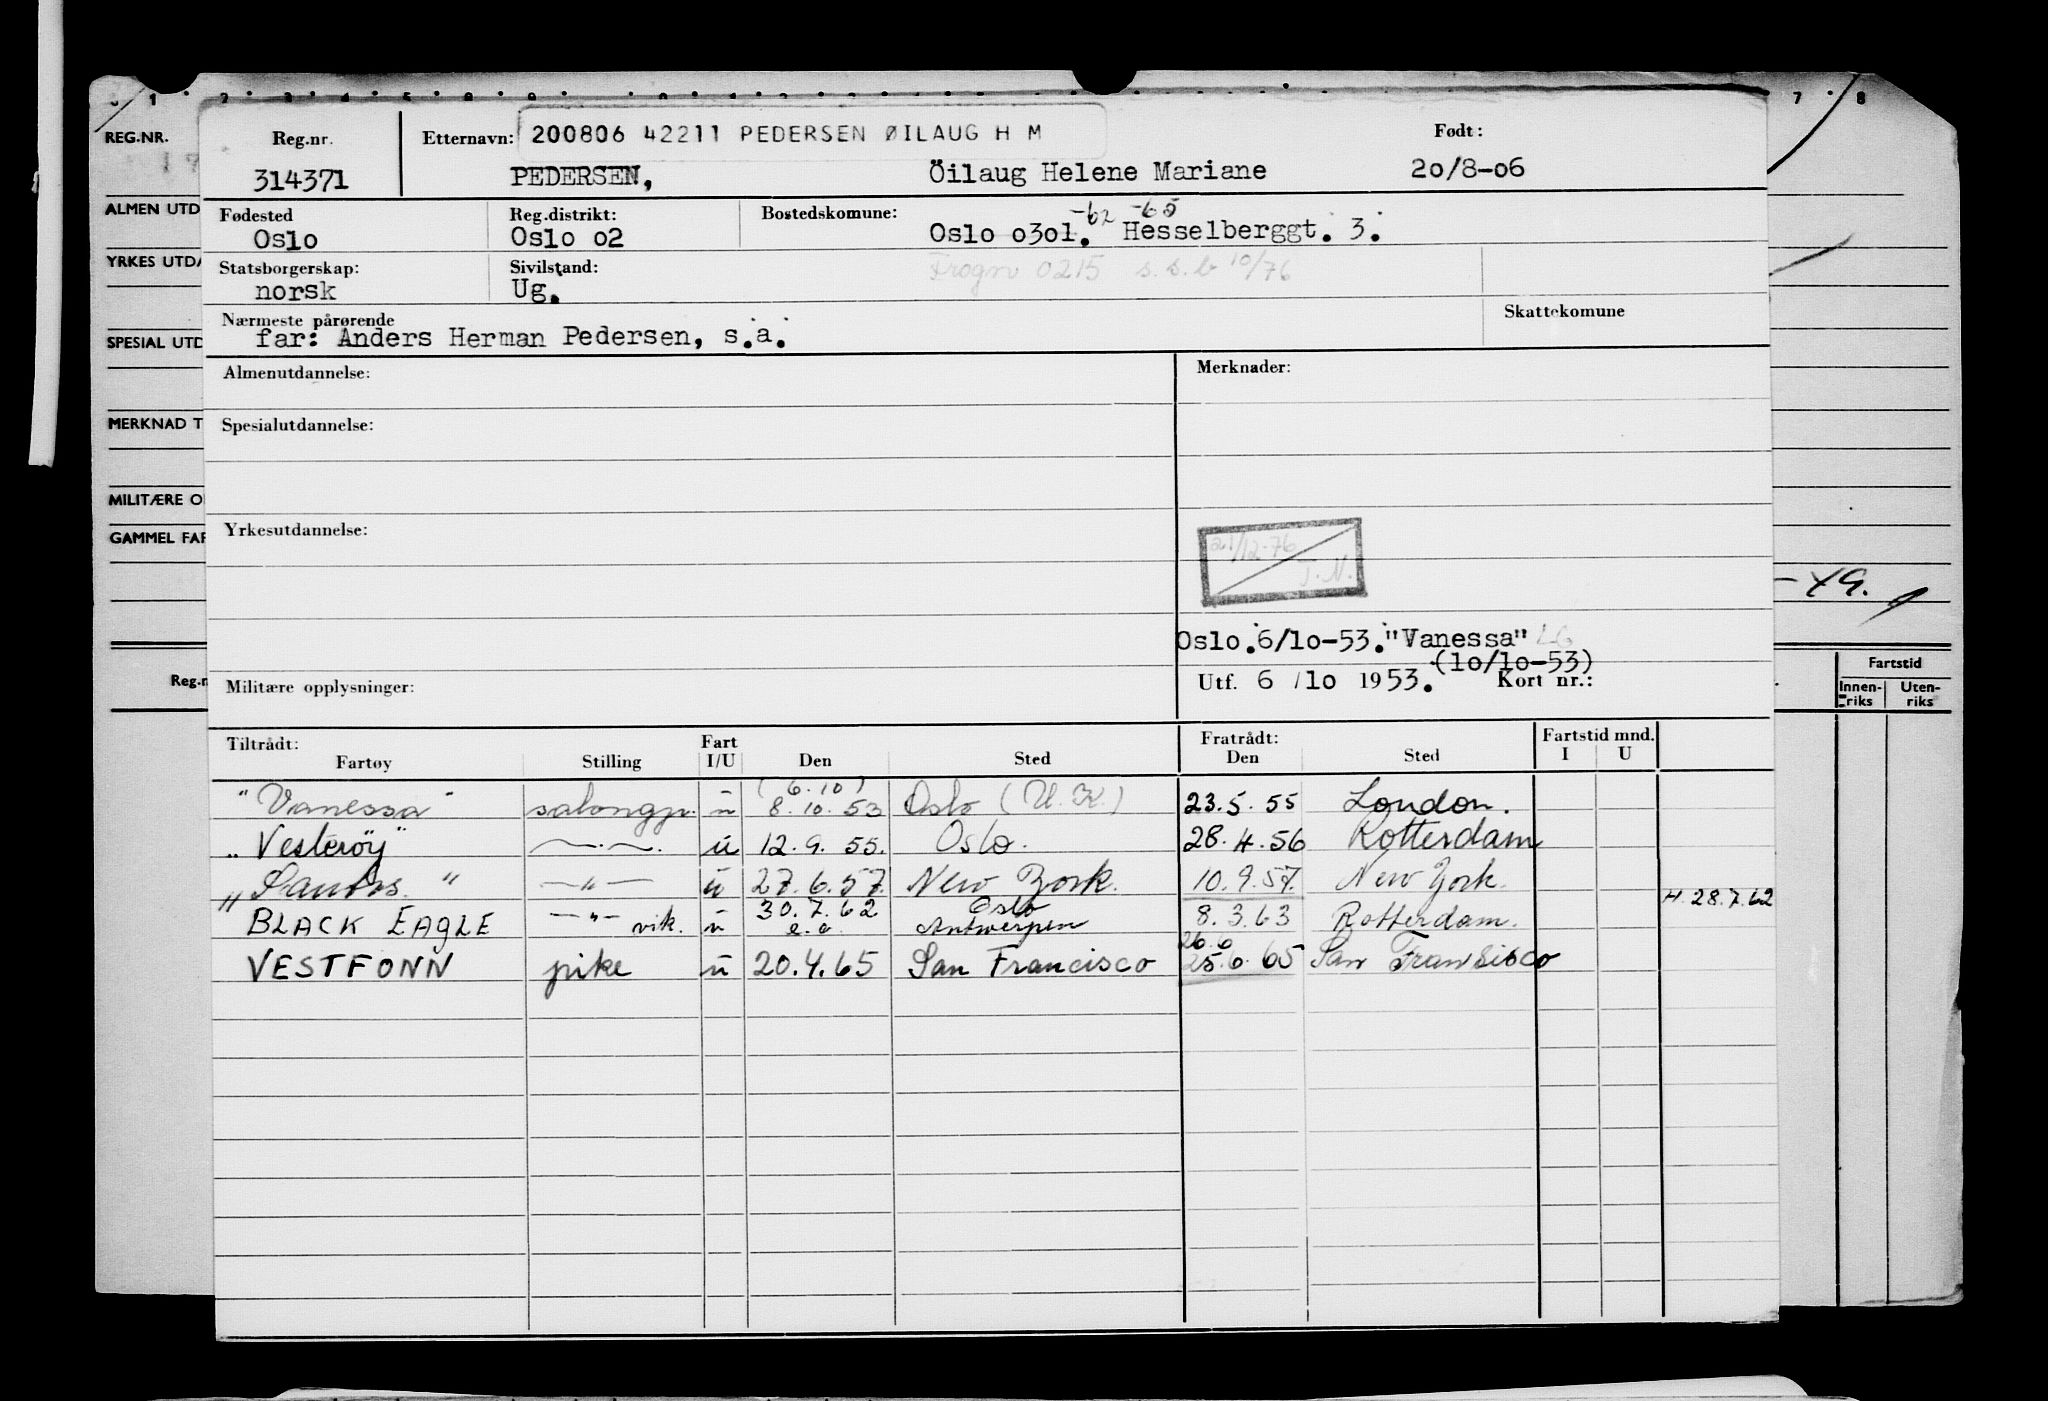 REG.NR.
ALMEN UTD
YRKES UTDA
SPESIAL UTD
MERKNAD T
MILITÆRE O
GAMMEL FAR
Reg.n
Fartstid
Innen-riks Uten-riks
Reg.nr. 314371
Etternavn: 200806 42211 PEDERSEN ØILAUG H M Født:
PEDERSEN, Öilaug Helene Mariane 20/8-06
Fødested Reg.distrikt: Bostedskomune: -62 -65
Oslo Oslo o2 Oslo o3ol. Hesselberggt. 3.
Statsborgerskap: Sivilstand: Frogn 0215 s.s.b 10/76
norsk Ug.
Nærmeste pårørende Skattekomune
far: Anders Herman Pedersen, s.a.
Almenutdannelse: Merknader:
Spesialutdannelse:
Yrkesutdannelse:
21/12-76
T.N.
Oslo.6/lo-53."Vanessa"
(lo/lo-53)
Militære opplysninger: Utf. 6 /lo 1953. Kort nr.:
Tiltrådt: Fart Fratrådt: Fartstid mnd.
Fartøy Stilling I/U Den Sted Den Sted I U
(6.10)
"Vanessa" salongp. u 8.10.53 Oslo (U.K.) 23.5.55 London.
"Vesterøy" —·—·— u 12.9.55. Oslo. 28.4.56 Rotterdam
"Santos." —"— u 27.6.57. New York. 10.9.57. New York.
BLACK EAGLE —"— vik. u 30.7.62 Oslo 8.3.63 Rotterdam. H. 28.7.62
e.a. Antwerpen
26.6
VESTFONN pike u 20.4.65 San Francisco 25.6.65 San Fransisco